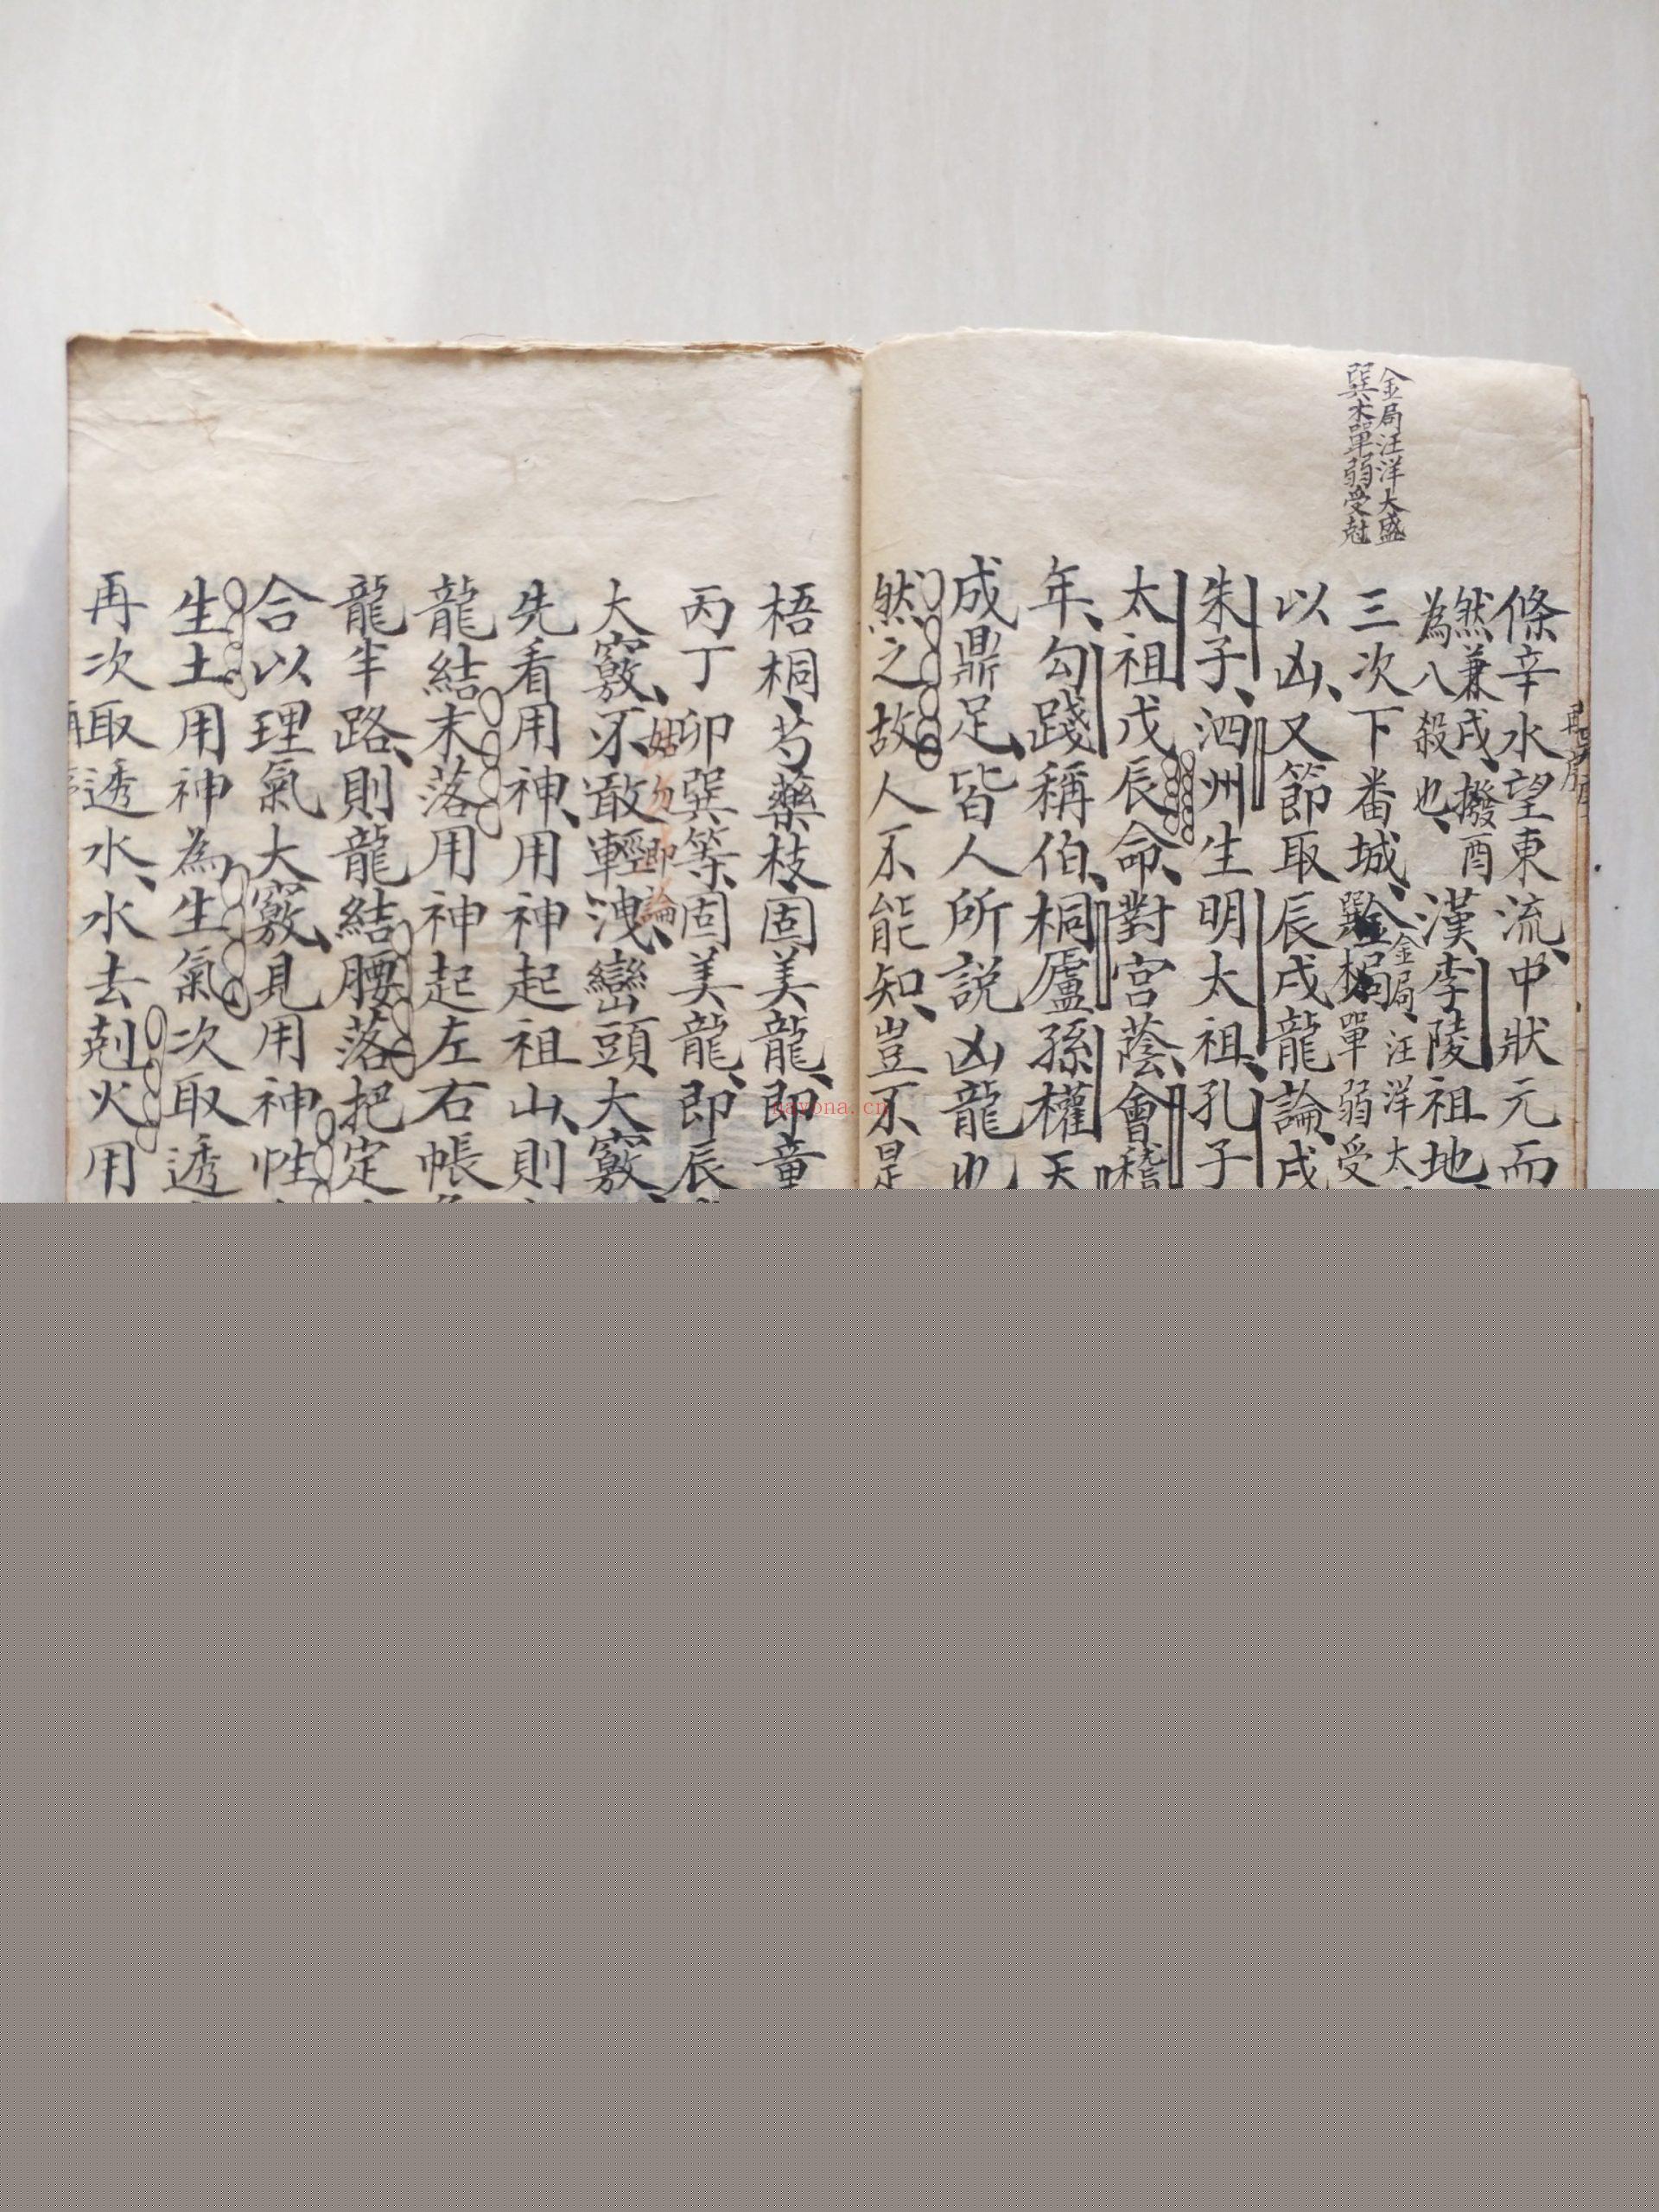 金局汪洋大盛
巽木單弱受尅
條辛水望東流、中狀元而
然兼戌、撥酉
為八殺也、
漢李陵祖地
三次下番城、
金局、汪洋太
單弱受
以凶、又節取辰戌龍論、戌
朱子、泗州生明太祖、孔子
太祖戊辰命、對宮蔭、會稽
年、勾踐稱伯、桐廬孫權天
成鼎足、皆人所說凶龍也
然之故人不能知、豈不是
梧桐、芍藥枝、固美龍、即童
丙丁卯巽等、固美龍、即辰
姑勿即論
大竅、不敢輕洩、巒頭、大竅
先看用神、用神起祖山、則
龍結末落用神起左右帳
龍半路、則龍結腰落把定
合以理氣大竅、見用神性
生土用神為生氣次取透
再次取透水、水去剋火用
nayona.cn